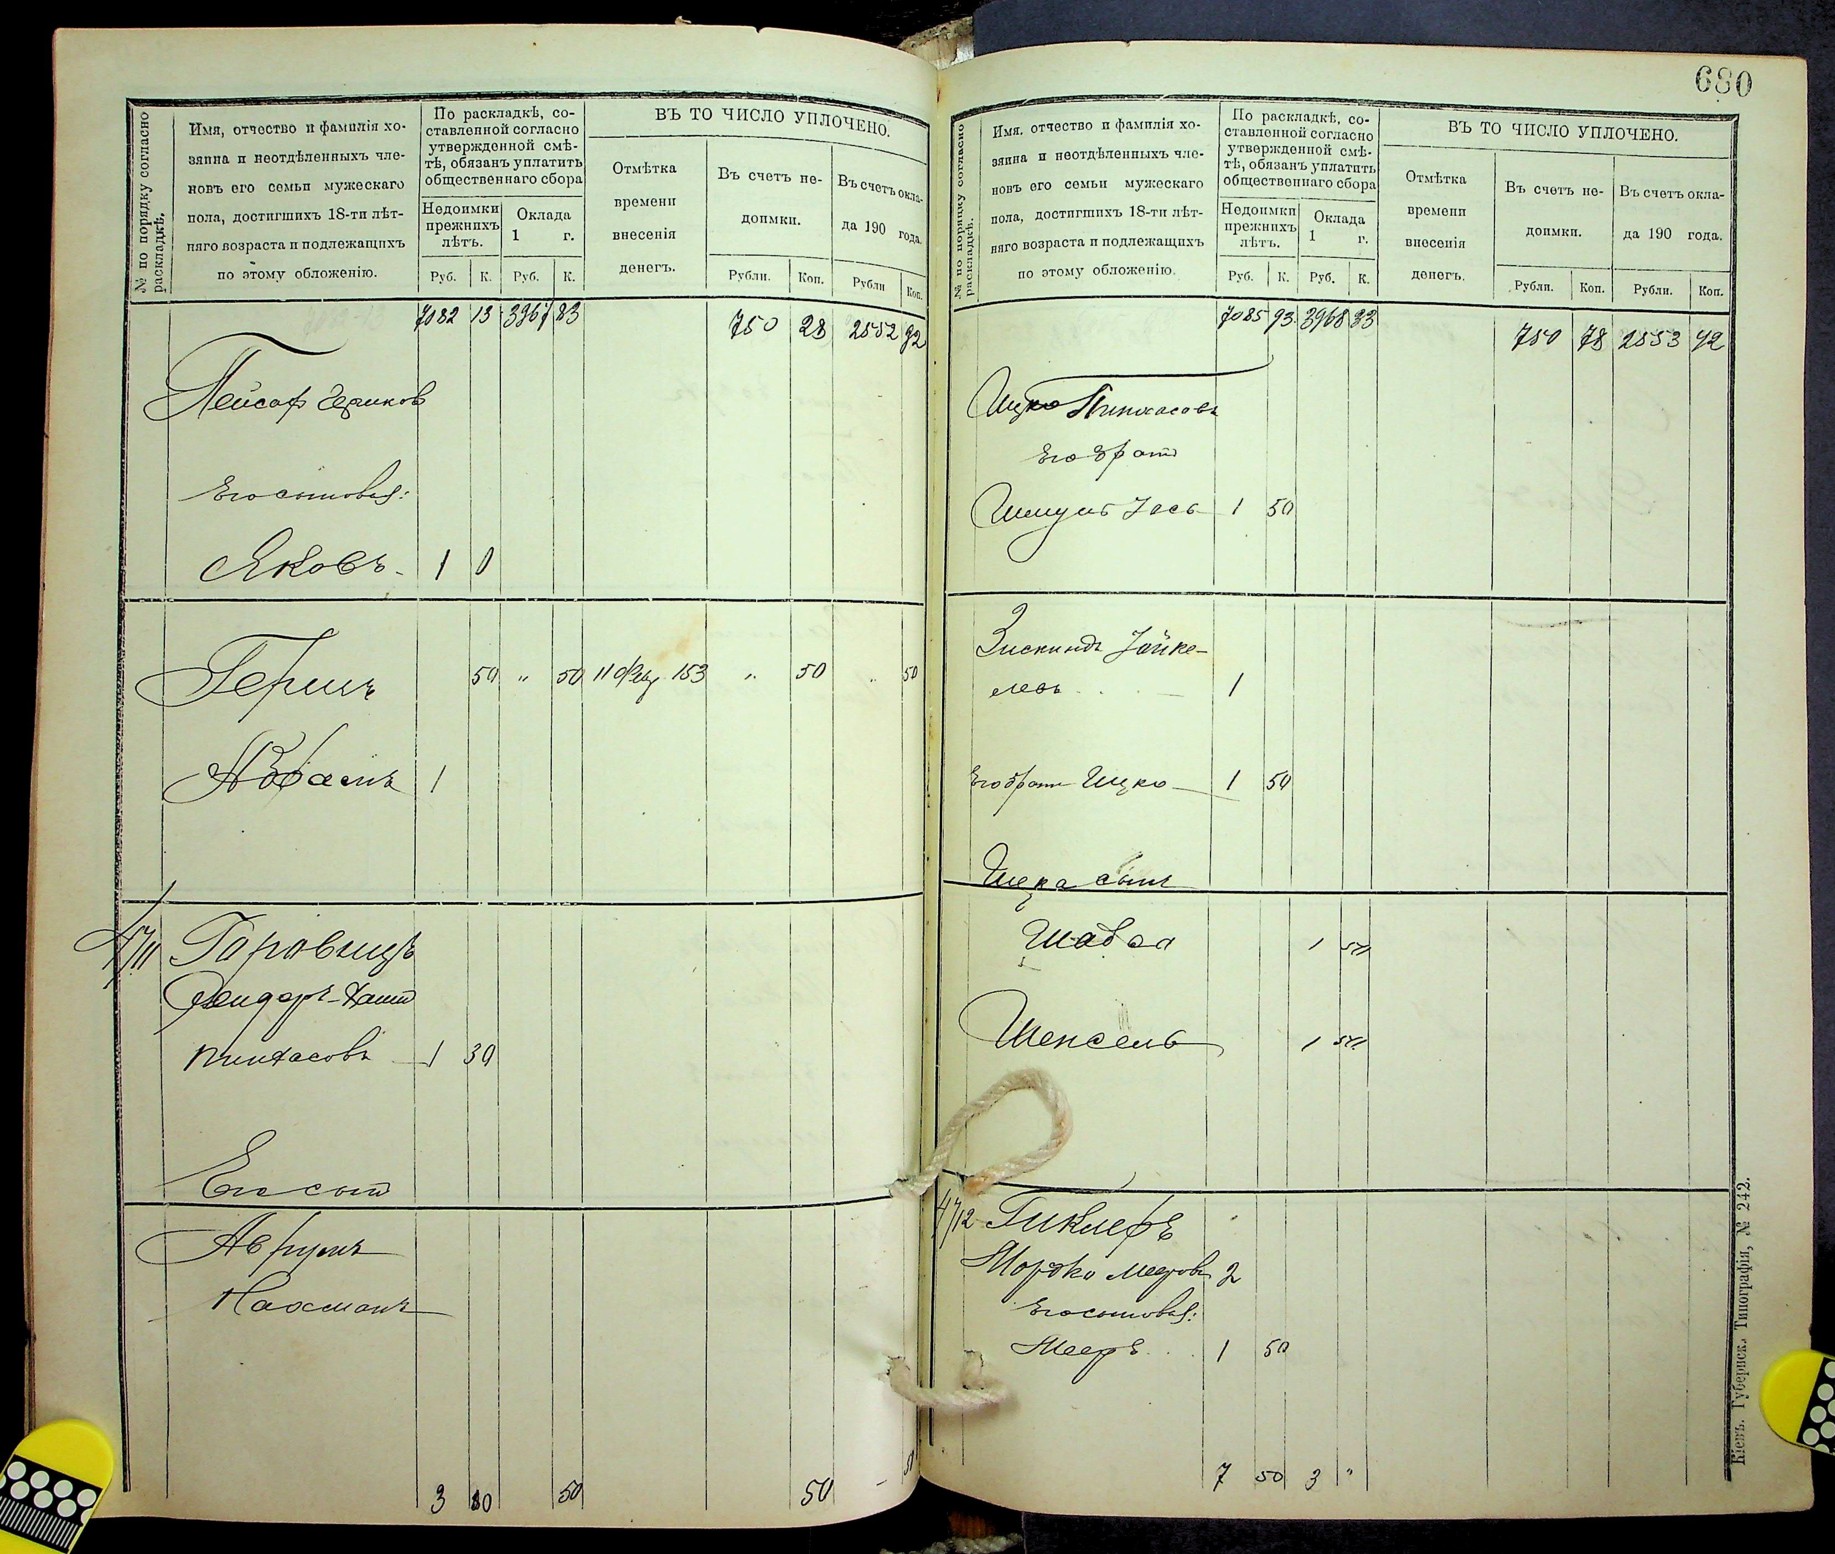 № по порядку согласно
раскладкѣ.
Имя, отчество и фамилія хо-
зяина и неотдѣленныхъ чле-
новъ его семьи мужескаго
пола, достигшихъ 18-ти лѣт-
няго возраста и подлежащихъ
по этому обложенію.
По раскладкѣ, со-
ставленной согласно
утвержденной смѣ-
тѣ, обязанъ уплатить
общественнаго сбора
Недоимки
прежнихъ
лѣтъ.
Оклада
1 г.
Руб. К. Руб. К.
ВЪ ТО ЧИСЛО УПЛОЧЕНО.
Отмѣтка
времени
внесенія
денегъ.
Въ счетъ не-
доимки.
Въ счетъ окла-
да 190 года.
Рубли. Коп. Рубли Коп.
7082 13 3967 83 750 28 2552 92
Пейсах
Его сыновья:
Яковъ 1 0
Гершъ 50 " 50 11 153 " 50 " 50
Абрамъ 1
4711 Горовицъ
Пинхасовъ 1 30
Его сынъ
Аврумъ
Нахманъ
3 80 50 50 - 50
680
№ по порядку согласно
раскладкѣ.
Имя, отчество и фамилія хо-
зяина и неотдѣленныхъ чле-
новъ его семьи мужескаго
пола, достигшихъ 18-ти лѣт-
няго возраста и подлежащихъ
по этому обложенію.
По раскладкѣ, со-
ставленной согласно
утвержденной смѣ-
тѣ, обязанъ уплатить
общественнаго сбора
Недоимки
прежнихъ
лѣтъ.
Оклада
1 г.
Руб. К. Руб. К.
ВЪ ТО ЧИСЛО УПЛОЧЕНО.
Отмѣтка
времени
внесенія
денегъ.
Въ счетъ не-
доимки.
Въ счетъ окла-
да 190 года.
Рубли. Коп. Рубли. Коп.
7085 93 3968 33 750 78 2553 42
Ицко Пинхасовъ
Его братъ
Шмуль Іось 1 50
Зискиндъ Іойке-
левъ 1
Его братъ Ицко 1 50
Ицка сынъ
1 50
Шепсель 1 50
4712 Гиклеръ
Мордко Мееровъ 2
Его сыновья:
Мееръ 1 50
7 50 3 "
Кіевъ. Губернск. Типографія, № 242.